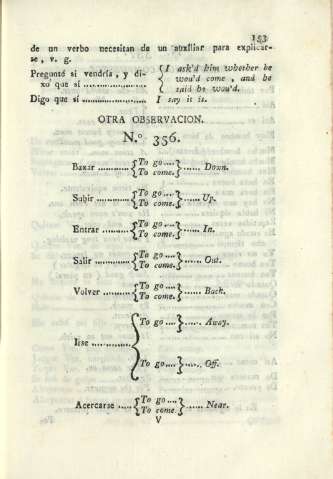 153
de un verbo necesitan de un auxîliar para explicar-
se, v. g.
Pregunté si vendría, y di- { I ask'd him whether he
xo que sí .................. { wou'd come, and he
said he wou'd.
Digo que sí .................. I say it is.
OTRA OBSERVACION.
N.º 356.
Baxar ............ { To go .... } ...... Down.
{ To come. }
Subir ............ { To go .... } ...... Up.
{ To come. }
Entrar ........... { To go .... } ...... In.
{ To come. }
Salir ............ { To go .... } ...... Out.
{ To come. }
Volver ......... { To go .... } ...... Back.
{ To come. }
{ To go .... } ...... Away.
Irse .............. {
{ To go .... } ...... Off.
Acercarse ..... { To go .... } ...... Near.
{ To come. }
V